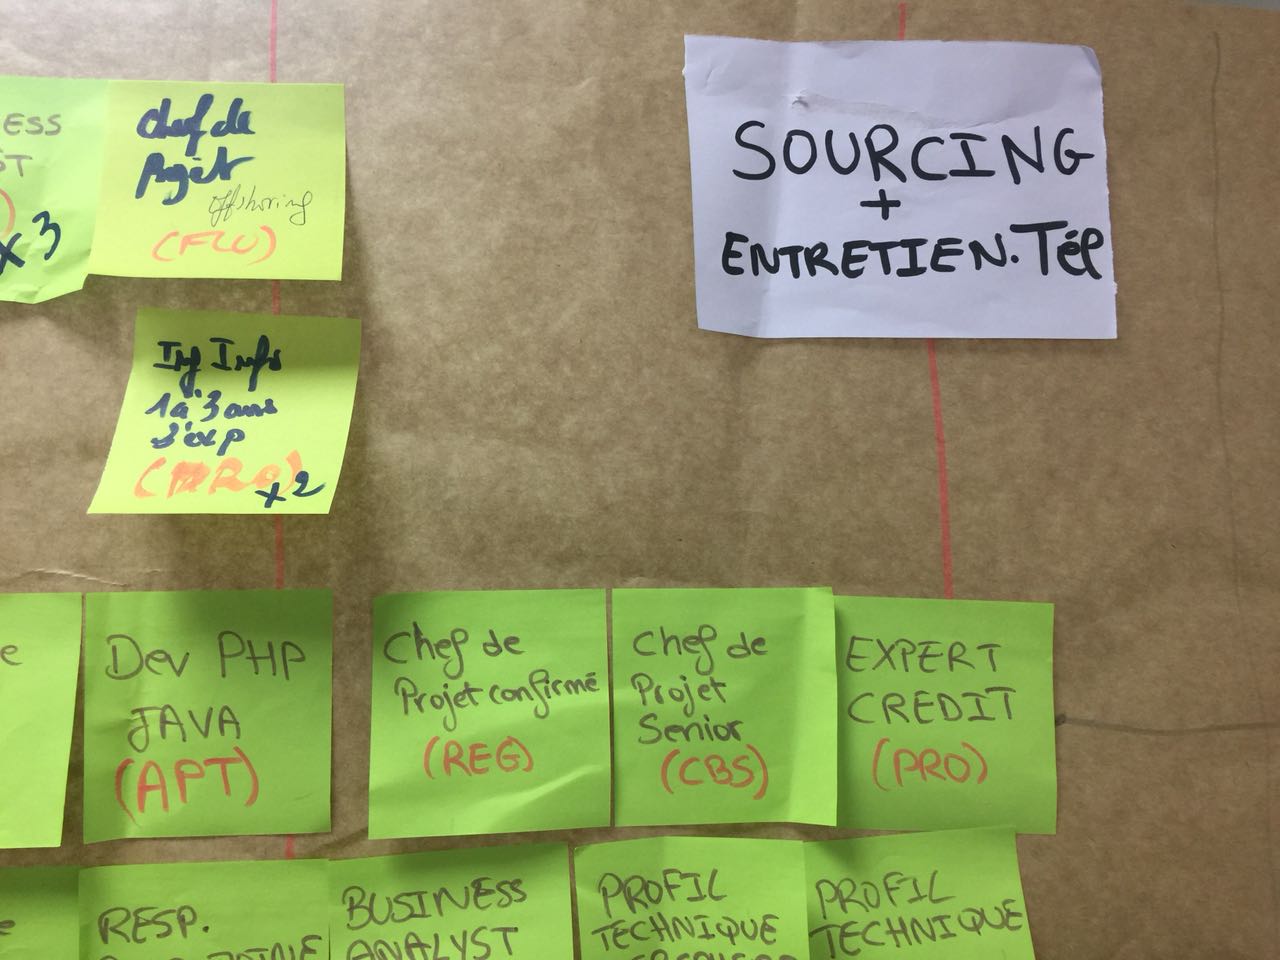 ESS
ST
)
x3
Chef de
Projet
offshoring
(FLU)
SOURCING
+
ENTRETIEN.Tél
Ing Info
1 à 3 ans
d'exp
x2
e
Dev PHP
JAVA
(APT)
Chef de
Projet confirmé
(REG)
Chef de
Projet
Senior
(CBS)
EXPERT
CREDIT
(PRO)
e
RESP.
BUSINESS
ANALYST
PROFIL
TECHNIQUE
PROFIL
TECHNIQUE